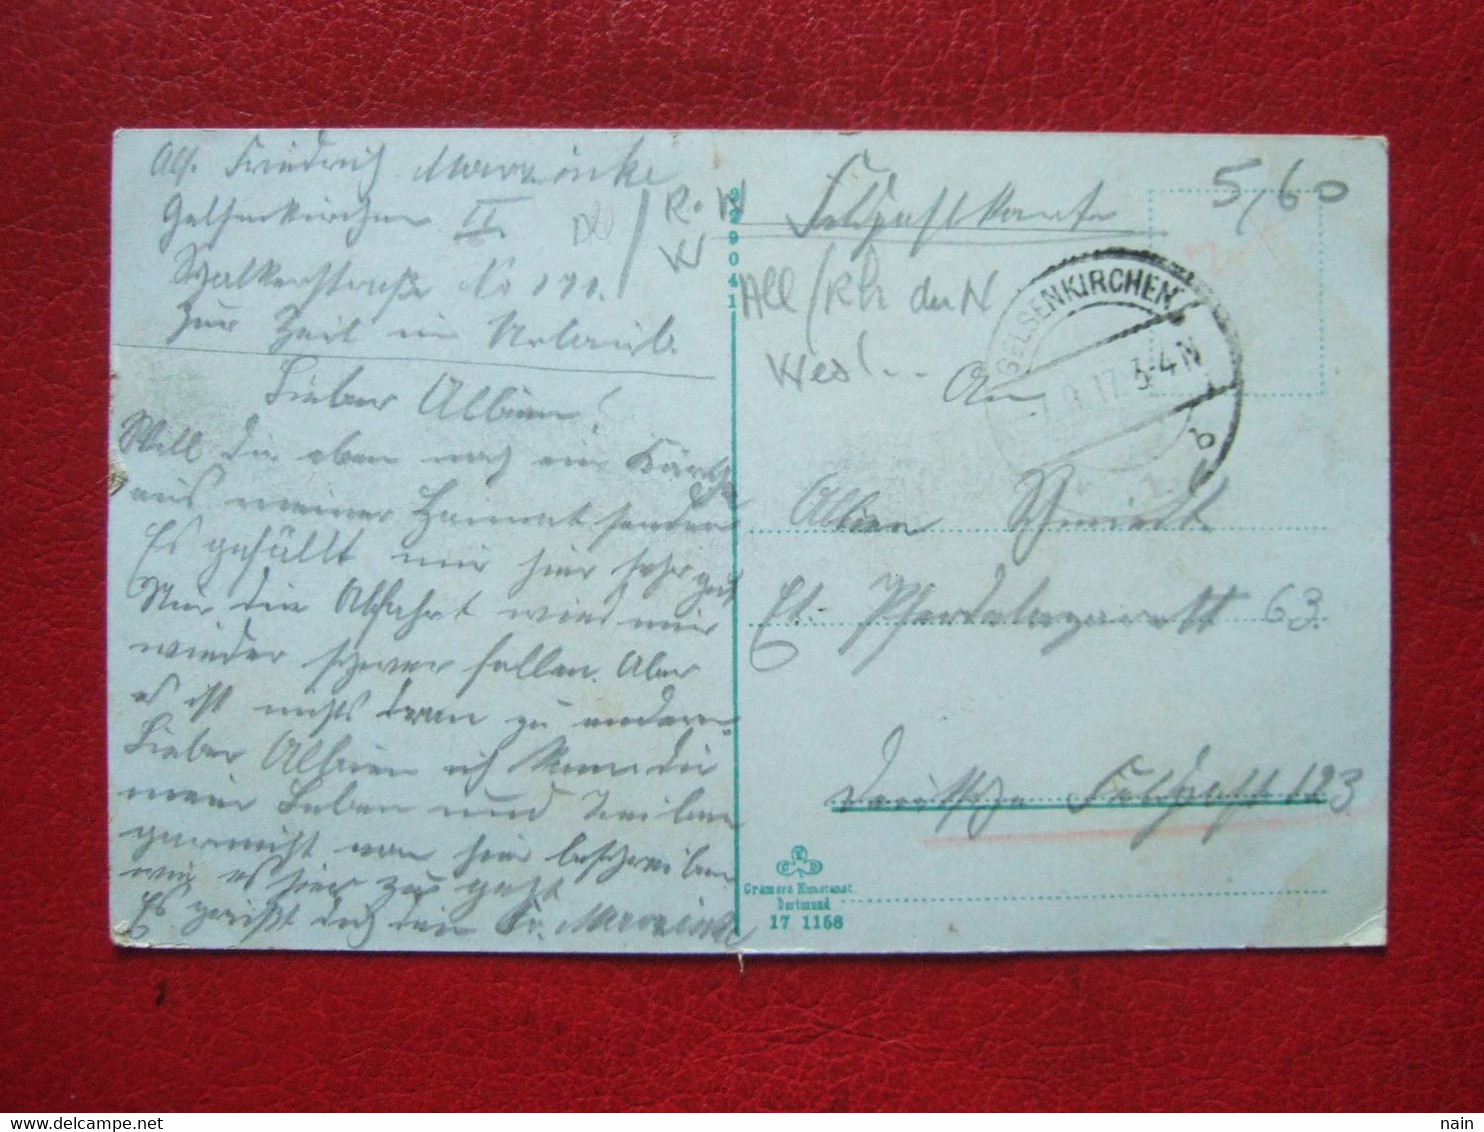 Abs. Friedrich Marzinke
Gelsenkirchen II.
Walkerstraße No 171.
Zur Zeit in Urlaub.
Lieber Albien!
Will dir eben noch ein Kärtchen
aus meiner Heimat senden
Es gefällt mir hier sehr gut
Nur die Abfahrt wird mir
wieder schwer fallen. Aber
es ist nichts dran zu ändern.
Lieber Albien ich kann dir
mein Leben und Treiben
garnicht von hier beschreiben
wie es hier zur geht
Es grüßt dich dein Fr. Marzinke
R. W
W
229041
Feldpostkarte
5/60
All/Rh der N
Wes(...
GELSENKIRCHEN
9.17. 3-4 N
b
1.
An
Albien Schmidt
Et. Pferdelazarett 63.
Deutsche Feldpost 123
C K D
Cramers Kunstanst.
Dortmund
17 1158
www.delcampe.net
nain